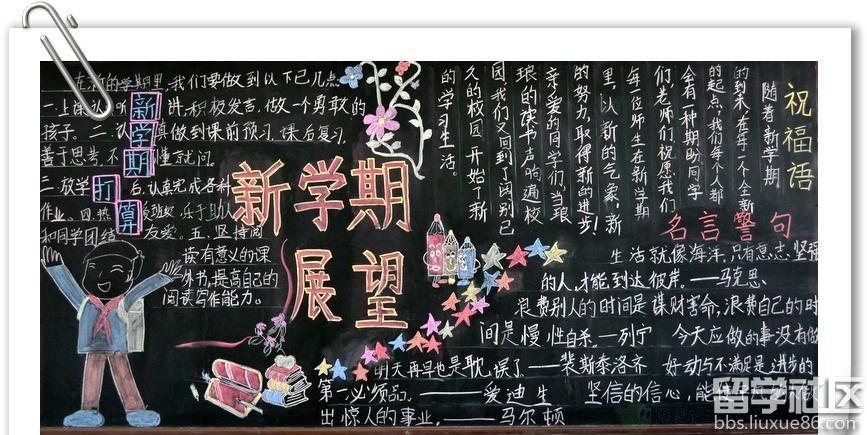 在新的学期里,我们要做到以下已几点
一.上课认 听 讲,积极发言,做一个勇敢的
孩子。二.认 真做到课前预习,课后复习,
善于思考,不 懂就问。
三.放学 后,认真完成各种
作业。四.热 爱班级,乐于助人
和同学团结 友爱。五.坚持阅
读有意义的课
外书,提高自己的
阅读写作能力。
新学期打算
新学期
展望
祝福语
随着新学期
的到来,在每一个全新
的起点,我们每个人都
会有一种期盼,同学
们,老师们祝愿我们
每一位师生在新学期
里,以新的气象,新
的努力,取得新的进步!
亲爱的同学们,当琅
琅的读书声响遍校
园,我们又回到了阔别已
久的校园,开始了新
的学习生活。
名言警句
生活就像海洋,只有意志坚强
的人,才能到达彼岸。——马克思
浪费别人的时间是谋财害命,浪费自己的时
间是慢性自杀。—列宁 今天应做的事没有做
明天再早也是耽误了——裴斯泰洛齐 好动与不满足是进步的
第一必须品。——爱迪生 坚信的信心,能使 做
出惊人的事业,——马尔顿
留学社区
bbs.liuxue86.com